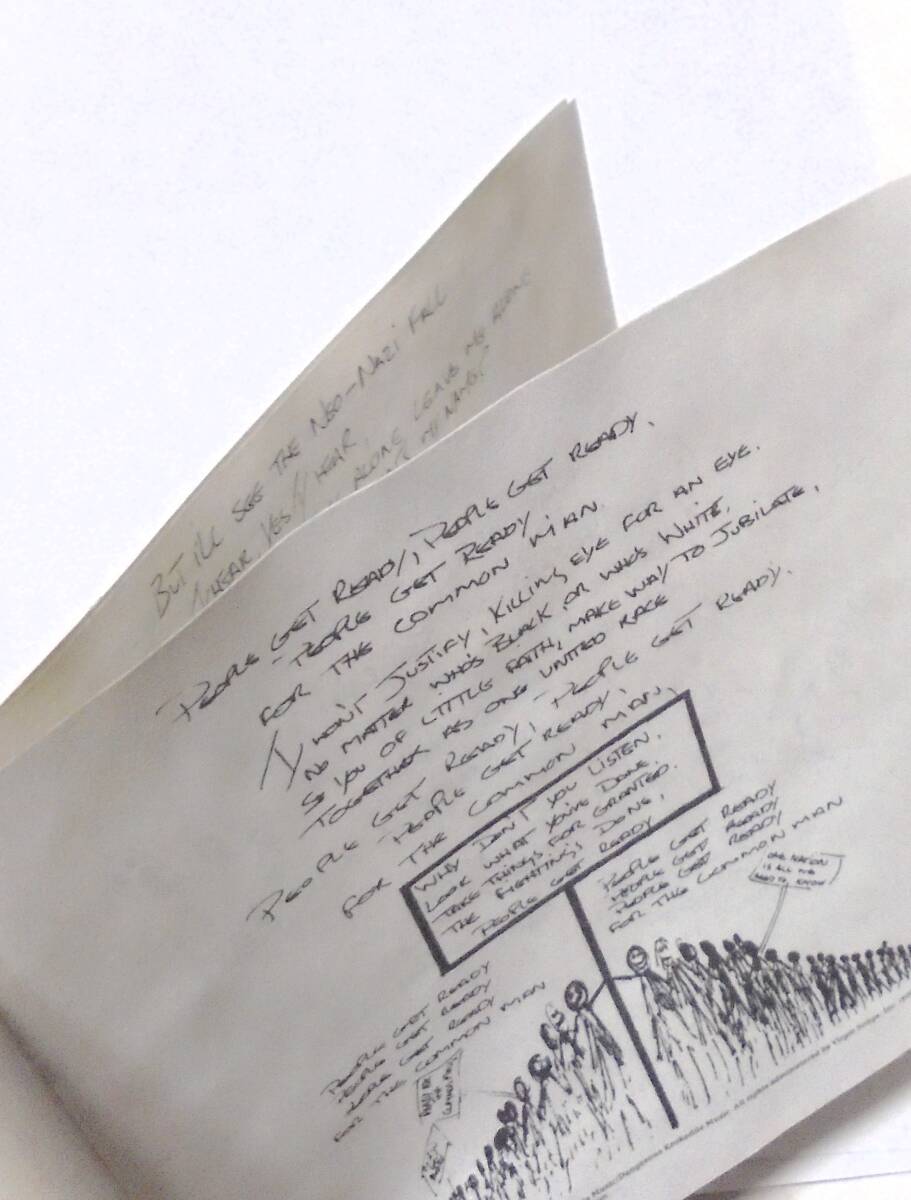 BUT I'LL SEE THE NEO-NAZI FALL
I HEAR, YES I HEAR,
ALONE LEAVE ME ALONE
PEOPLE GET READY, PEOPLE GET READY,
- PEOPLE GET READY
FOR THE COMMON MAN.
I WON'T JUSTIFY, KILLING EYE FOR AN EYE.
NO MATTER WHO'S BLACK, OR WHO'S WHITE,
SO YOU OF LITTLE FAITH, MAKE WAY TO JUBILATE,
TOGETHER AS ONE UNITED RACE
PEOPLE GET READY, PEOPLE GET READY.
- PEOPLE GET READY,
FOR THE COMMON MAN,
WHY DON'T YOU LISTEN,
LOOK WHAT YOU'VE DONE,
TAKE THINGS FOR GRANTED.
THE FIGHTING'S DONE,
PEOPLE GET READY
PEOPLE GET READY
PEOPLE GET READY
PEOPLE GET READY
FOR THE COMMON MAN
ONE NATION
IS ALL WE
NEED TO KNOW
PEOPLE GET READY
PEOPLE GET READY
PEOPLE GET READY
FOR THE COMMON MAN
Music. All rights administered by Virgin Songs, Inc.